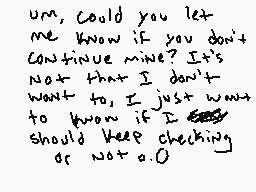 um, could you let
me know if you don't
continue mine? It's
not that I don't
want to, I just want
to know if I
should keep checking
or not o.O